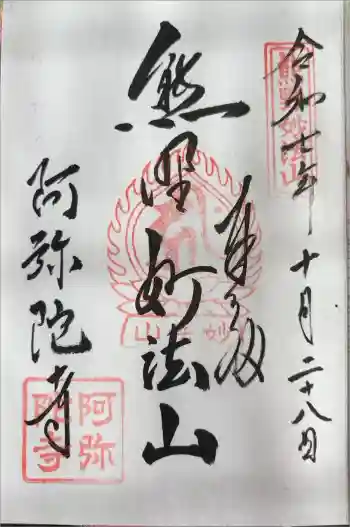 令和七年十月二十八日
熊野妙法山
奉拝
熊野妙法山
妙法山
阿弥陀寺
阿弥
陀寺